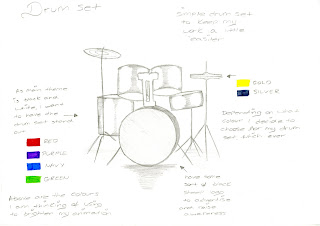 Drum Set
Simple drum set
to keep my
work a little
easier!
As main theme
is black and
white, I want
to have the
drum set stand
out
GOLD
SILVER
Depending on what
colour I decide to
choose for my drum
set touch over
RED
PURPLE
NAVY
GREEN
Above are the colours
I am thinking of using
to brighten my animation
have some
sort of
logo
to advertise
and raise
awareness